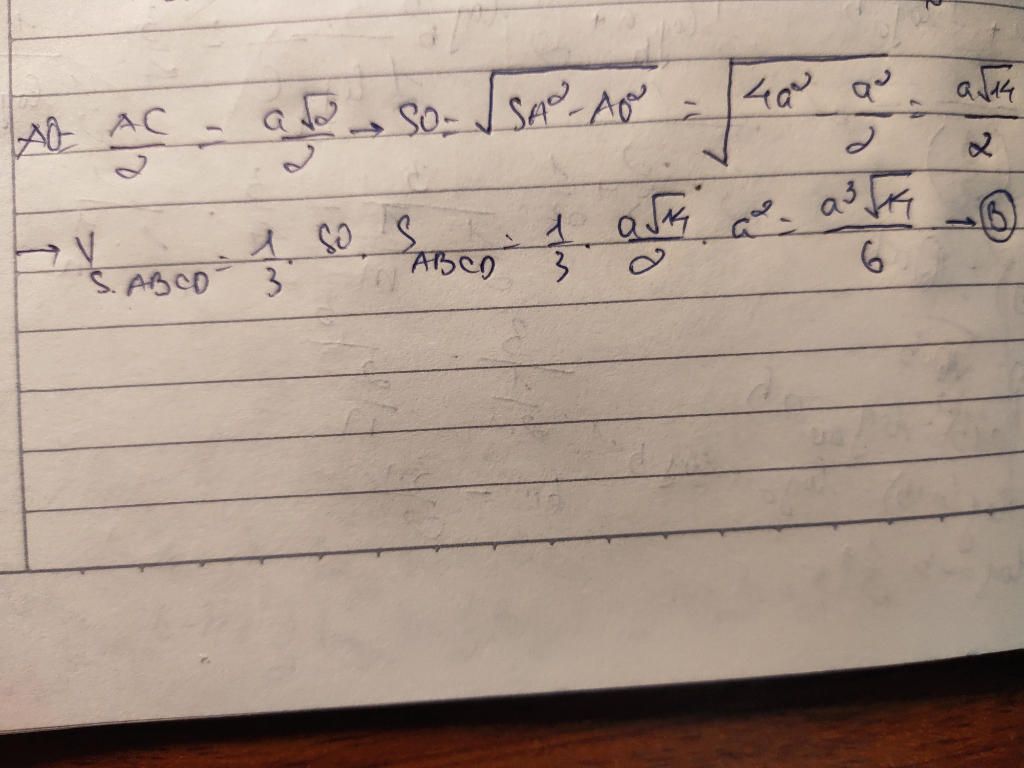 AO = AC/2 = a√2/2 → SO = √(SA² - AO²) = √(4a² a²/2) = a√14/2
→ V S.ABCD = 1/3 . SO . S ABCD = 1/3 . a√14/2 . a² = a³√14/6 → B